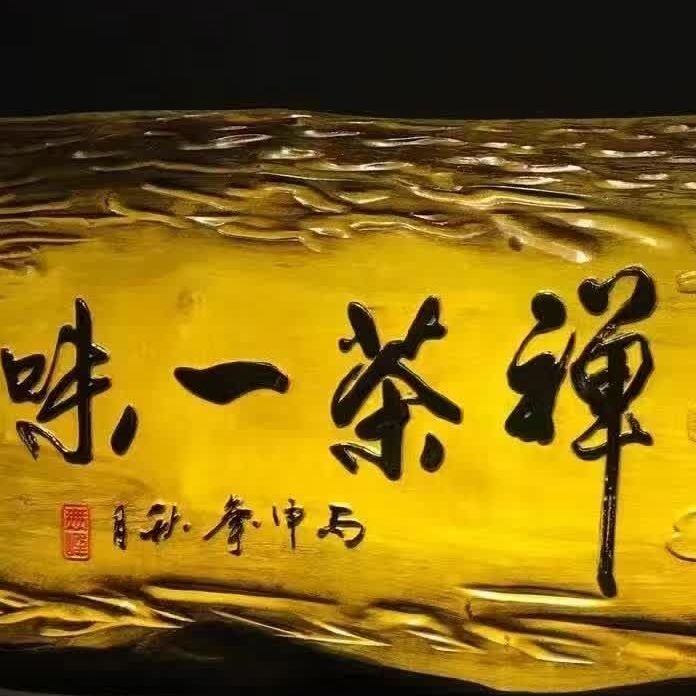 禅茶一味
丙申年秋月